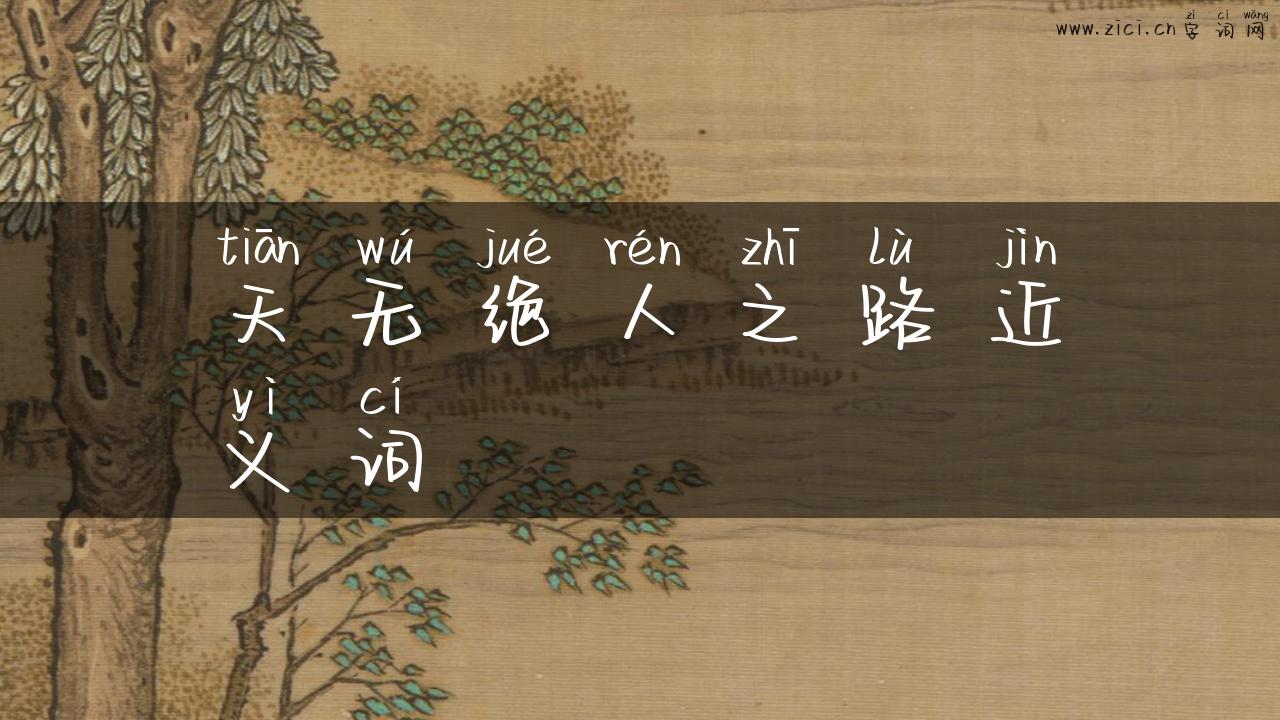 zì cí wǎng
www.zici.cn 字词网
tiān wú jué rén zhī lù jìn
天无绝人之路近
yì cí
义词